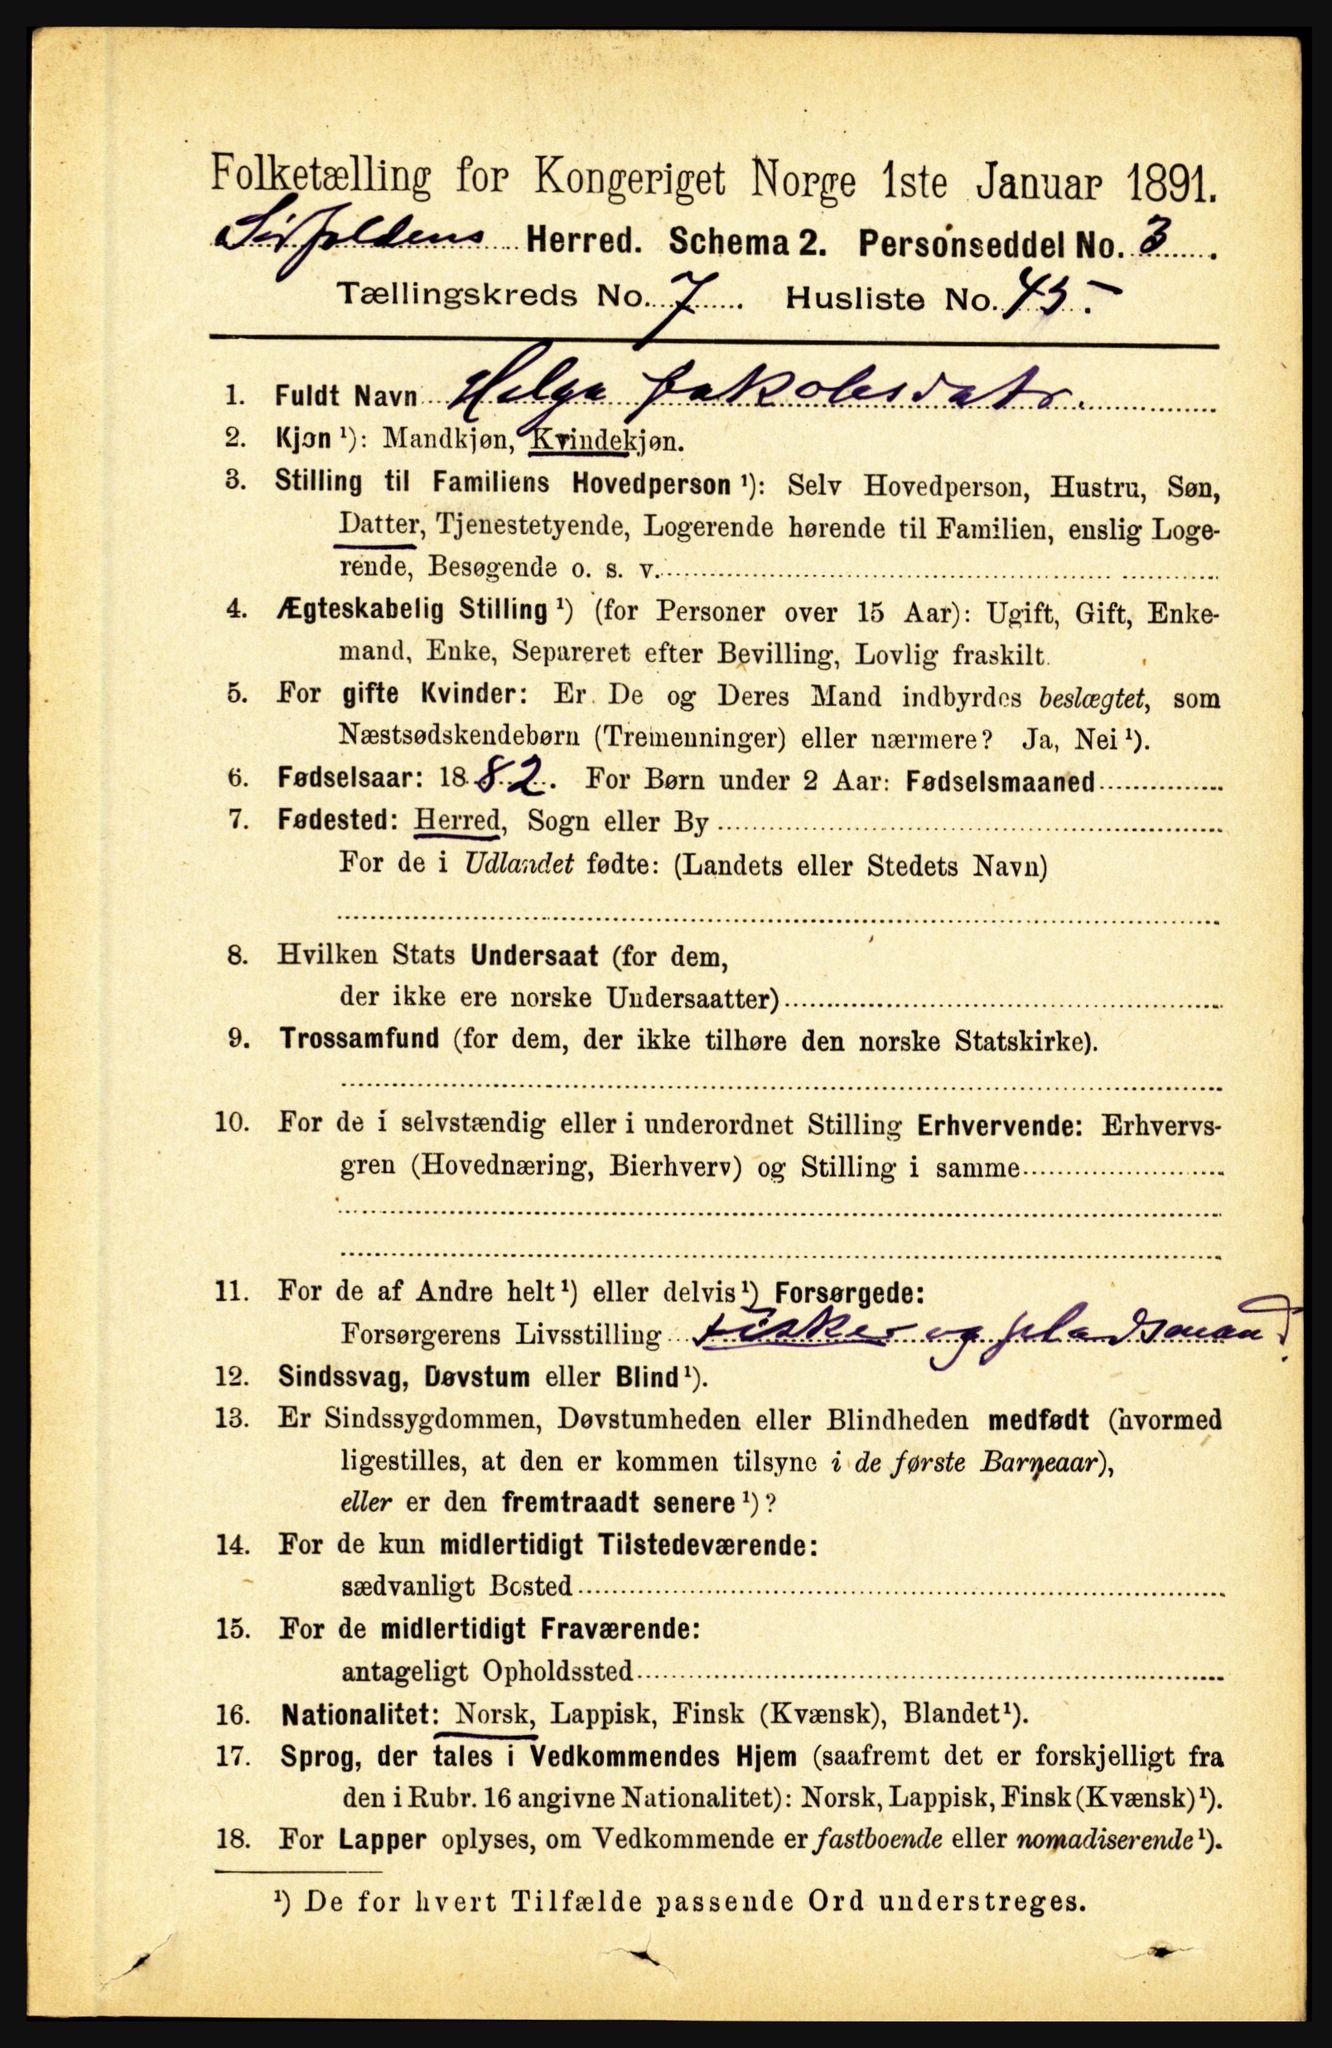 Folketælling for Kongeriget Norge 1ste Januar 1891.
Sørfoldens Herred. Schema 2. Personseddel No. 3.
Tællingskreds No. 7. Husliste No. 45.
1. Fuldt Navn Helga Jakobsdatr.
2. Kjøn ¹): Mandkjøn, Kvindekjøn.
3. Stilling til Familiens Hovedperson ¹): Selv Hovedperson, Hustru, Søn,
Datter, Tjenestetyende, Logerende hørende til Familien, enslig Loge-
rende, Besøgende o. s. v.
4. Ægteskabelig Stilling ¹) (for Personer over 15 Aar): Ugift, Gift, Enke-
mand, Enke, Separeret efter Bevilling, Lovlig fraskilt.
5. For gifte Kvinder: Er De og Deres Mand indbyrdes beslægtet, som
Næstsødskendebørn (Tremenninger) eller nærmere? Ja, Nei ¹).
6. Fødselsaar: 1882. For Børn under 2 Aar: Fødselsmaaned
7. Fødested: Herred, Sogn eller By
For de i Udlandet fødte: (Landets eller Stedets Navn)
8. Hvilken Stats Undersaat (for dem,
der ikke ere norske Undersaatter)
9. Trossamfund (for dem, der ikke tilhøre den norske Statskirke).
10. For de i selvstændig eller i underordnet Stilling Erhvervende: Erhvervs-
gren (Hovednæring, Bierhverv) og Stilling i samme
11. For de af Andre helt ¹) eller delvis ¹) Forsørgede:
Forsørgerens Livsstilling Fisker og pladsmand.
12. Sindssvag, Døvstum eller Blind ¹).
13. Er Sindssygdommen, Døvstumheden eller Blindheden medfødt (hvormed
ligestilles, at den er kommen tilsyne i de første Barneaar),
eller er den fremtraadt senere ¹)?
14. For de kun midlertidigt Tilstedeværende:
sædvanligt Bosted
15. For de midlertidigt Fraværende:
antageligt Opholdssted
16. Nationalitet: Norsk, Lappisk, Finsk (Kvænsk), Blandet ¹).
17. Sprog, der tales i Vedkommendes Hjem (saafremt det er forskjelligt fra
den i Rubr. 16 angivne Nationalitet): Norsk, Lappisk, Finsk (Kvænsk) ¹).
18. For Lapper oplyses, om Vedkommende er fastboende eller nomadiserende ¹).
¹) De for hvert Tilfælde passende Ord understreges.